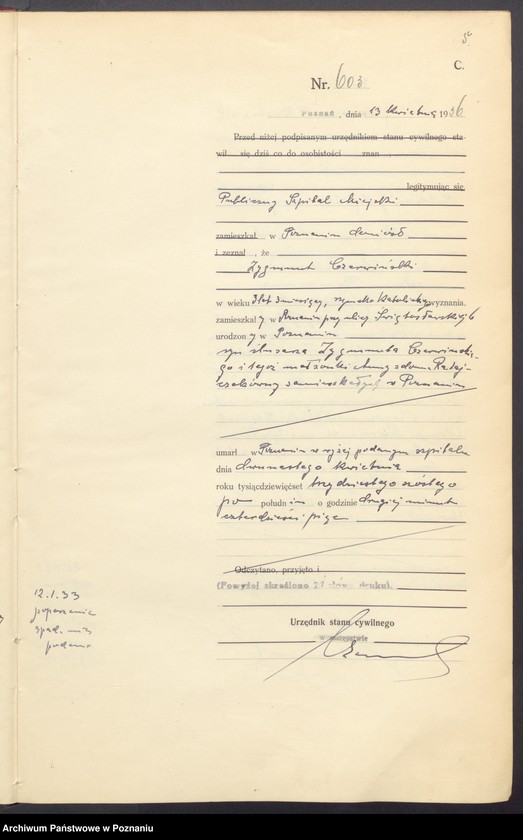 5
C.
Nr. 603
Poznań, dnia 13 kwietnia 1936
Przed niżej podpisanym urzędnikiem stanu cywilnego sta-
wił się dziś co do osobistości znan
legitymując się
Publiczny Szpital Miejski
zamieszkał w Poznaniu doniósł
i zeznał, że
Zygmunt Czerwiński
w wieku 3 lat 3 miesięcy, rzymsko katolickiego wyznania,
zamieszkały w Poznaniu przy ulicy Świętosławskiej 6
urodzony w Poznaniu
syn ślusarza Zygmunta Czerwińskie-
go i tegoż małżonki Anny z domu Rataj-
czakówny zamieszkałych w Poznaniu
umarł w Poznaniu w wyżej podanym szpitalu
dnia dwunastego kwietnia
roku tysiącdziewięćset trzydziestego szóstego
po południu o godzinie drugiej minut
czterdzieści pięć
Odczytano, przyjęto i
(Powyżej skreślono słów druku).
Urzędnik stanu cywilnego
w zastępstwie
12.1.33
podano
Archiwum Państwowe w Poznaniu